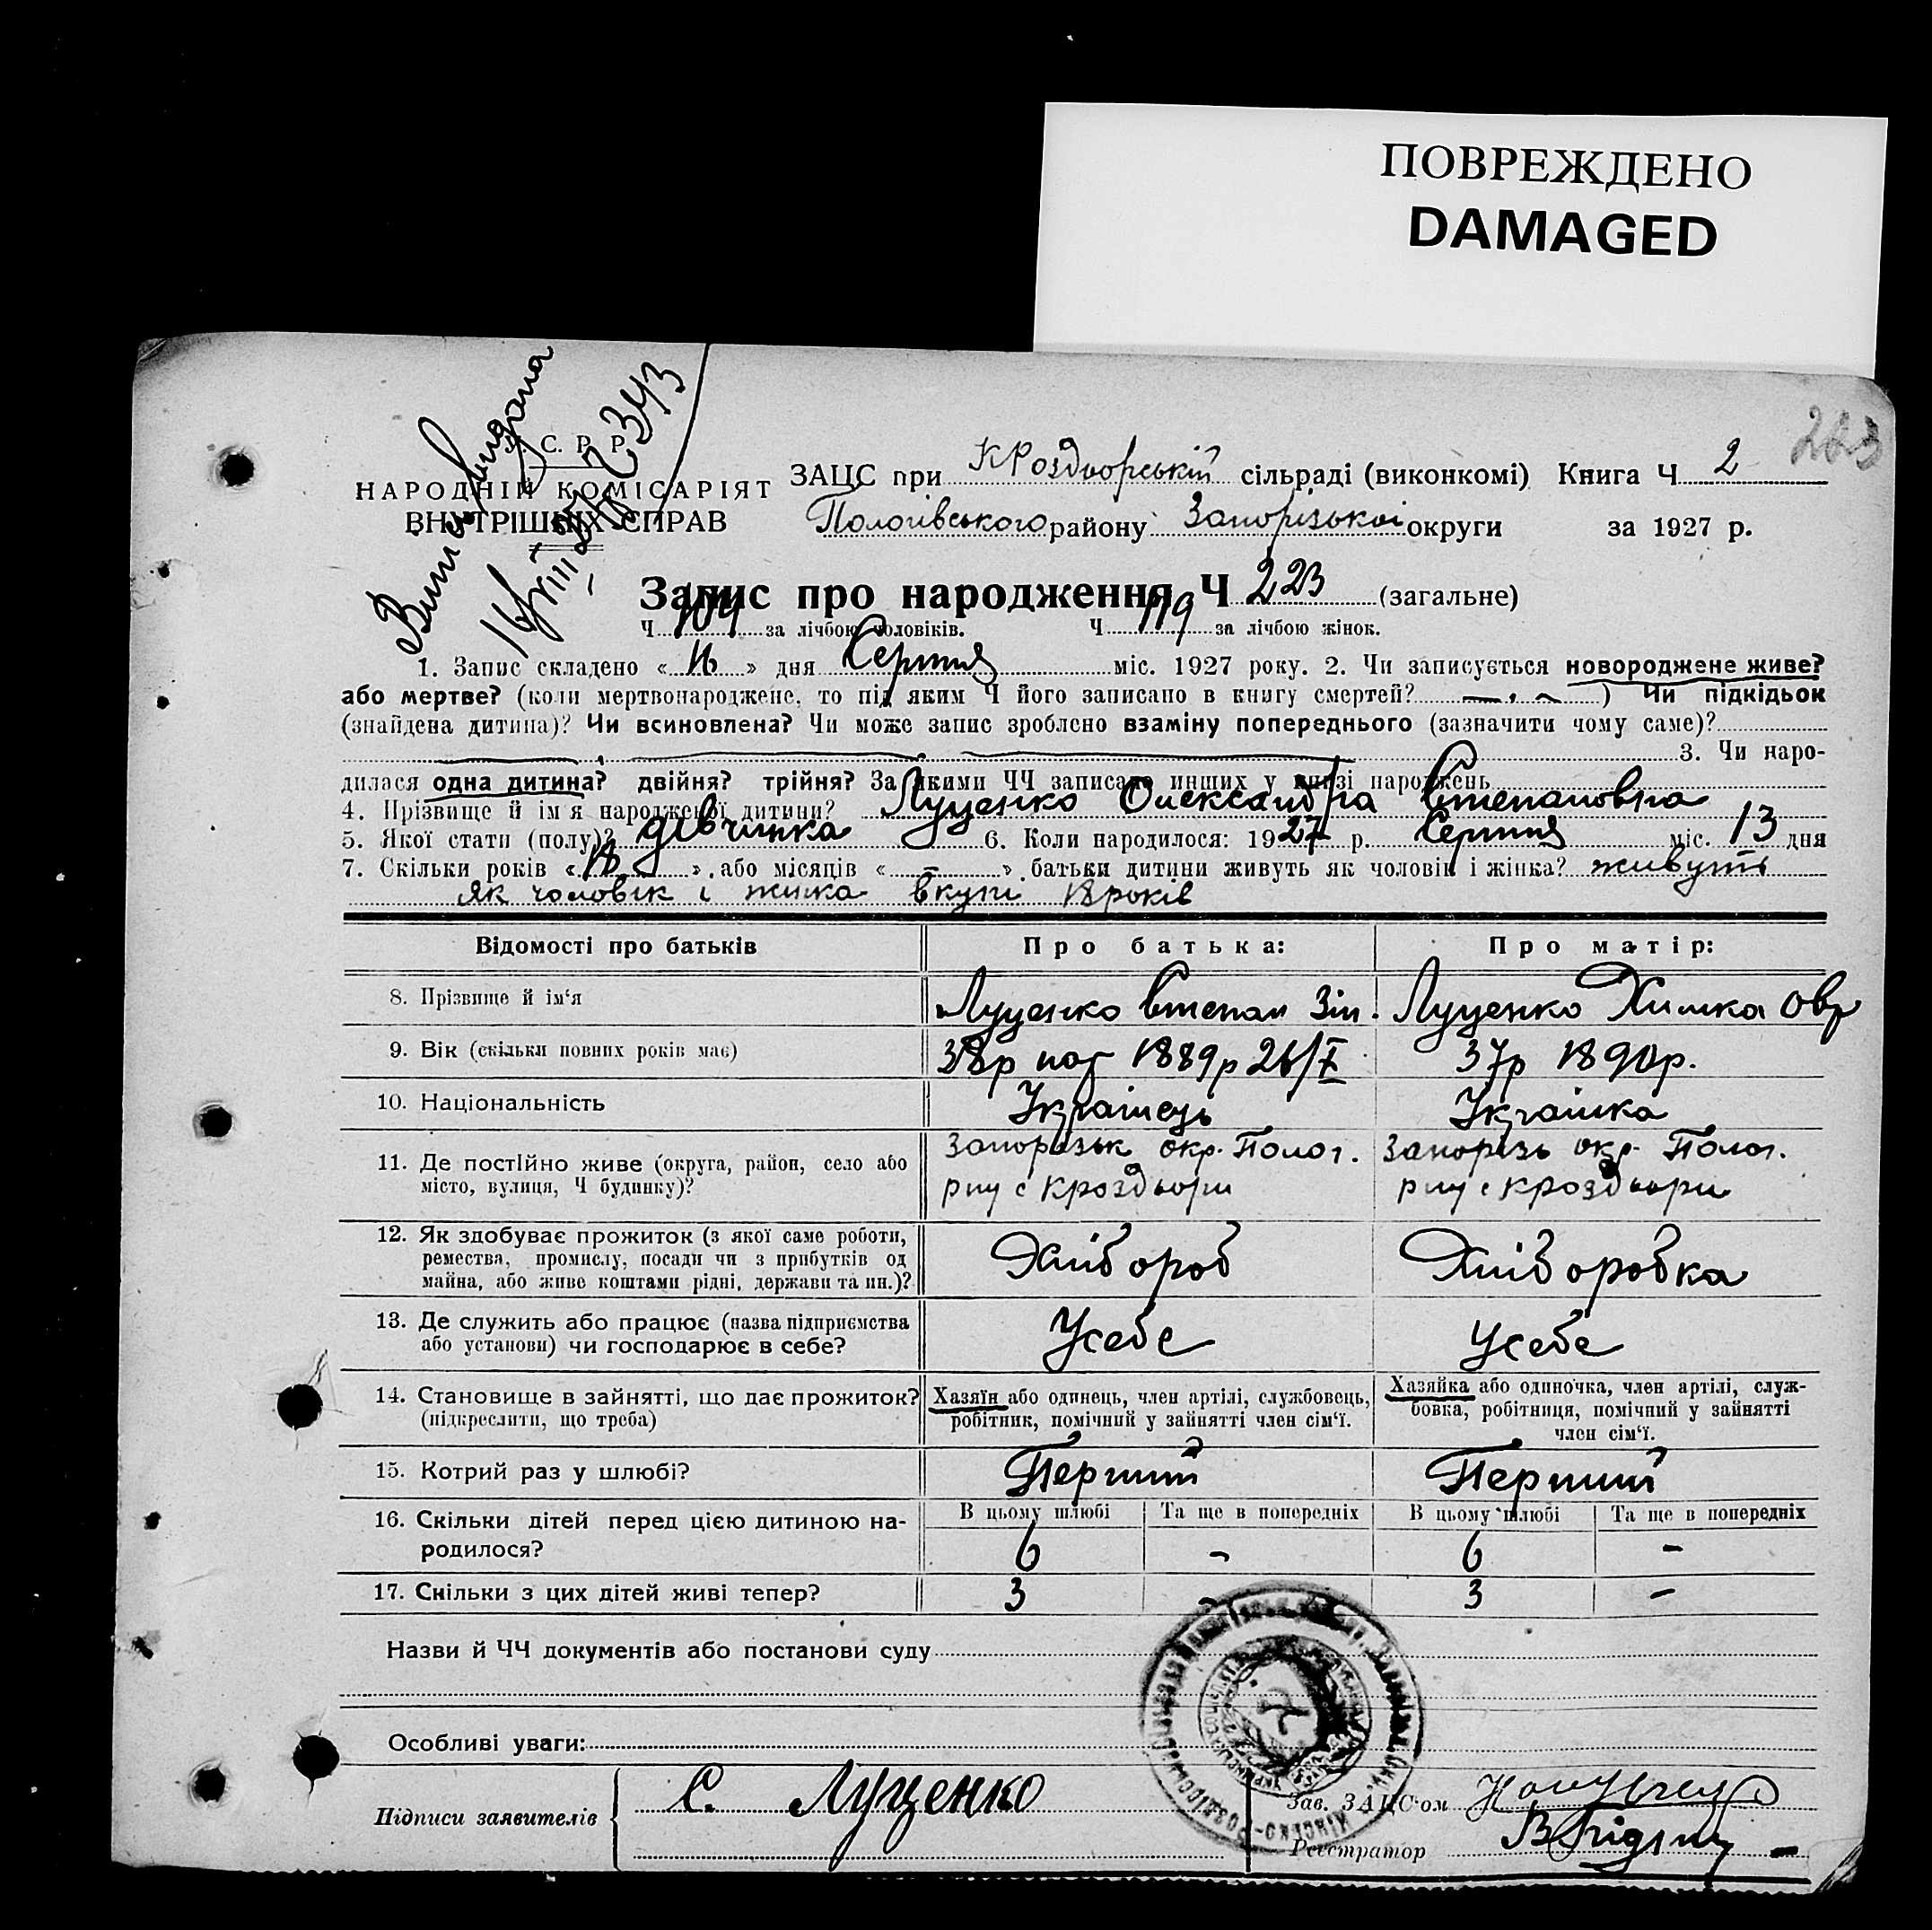 ПОВРЕЖДЕНО
DAMAGED
223
Витяг видана
16/VIII 27 Ч 343
У. С. Р. Р.
НАРОДНІЙ КОМІСАРІЯТ
ВНУТРІШНІХ СПРАВ
ЗАЦС при КРоздворській сільраді (виконкомі) Книга Ч 2
Пологівського району Запорізької округи за 1927 р.
Запис про народження Ч 223 (загальне)
Ч 104 за лічбою чоловіків. Ч 119 за лічбою жінок.
1. Запис складено « 16 » дня Серпня міс. 1927 року. 2. Чи записується новороджене живе?
або мертве? (коли мертвонароджене, то під яким Ч його записано в книгу смертей? — ) Чи підкідьок
(знайдена дитина)? Чи всиновлена? Чи може запис зроблено взаміну попереднього (зазначити чому саме)?
3. Чи наро-
дилася одна дитина? двійня? трійня? За якими ЧЧ записано инших у книзі народжень
4. Прізвище й ім'я народженої дитини? Луценко Олександра Степановна
5. Якої стати (полу)? дівчинка 6. Коли народилося: 1927 р. Серпня міс. 13 дня
7. Скільки років « 18 », або місяців « — » батьки дитини живуть як чоловік і жінка? живуть
як чоловік і жинка вкупі 18 років
Відомості про батьків Про батька: Про матір:
8. Прізвище й ім'я Луценко Степан Зін. Луценко Химка Овр
9. Вік (скільки повних років має) 38р 1889р 26/X 37р 1890р.
10. Національність Українець Українка
11. Де постійно живе (округа, район, село або Запорізьк окр. Полог. Запорізь окр. Полог.
місто, вулиця, Ч будинку)? рну с Кроздвори рну с Кроздвори
12. Як здобуває прожиток (з якої саме роботи,
ремества, промислу, посади чи з прибутків од Хлібороб Хліборобка
майна, або живе коштами рідні, держави та ин.)?
13. Де служить або працює (назва підприємства Усебе Усебе
або установи) чи господарює в себе?
14. Становище в зайнятті, що дає прожиток? Хазяїн або одинець, член артілі, службовець, Хазяйка або одиночка, член артілі, служ-
(підкреслити, що треба) робітник, помічний у зайнятті член сім'ї. бовка, робітниця, помічний у зайнятті
член сім'ї.
15. Котрий раз у шлюбі? Перший Перший
16. Скільки дітей перед цією дитиною на- В цьому шлюбі Та ще в попередніх В цьому шлюбі Та ще в попередніх
родилося? 6 - 6 -
17. Скільки з цих дітей живі тепер? 3 - 3 -
Назви й ЧЧ документів або постанови суду
Особливі уваги:
Підписи заявителів С. Луценко
Зав. ЗАЦС'ом
Реєстратор